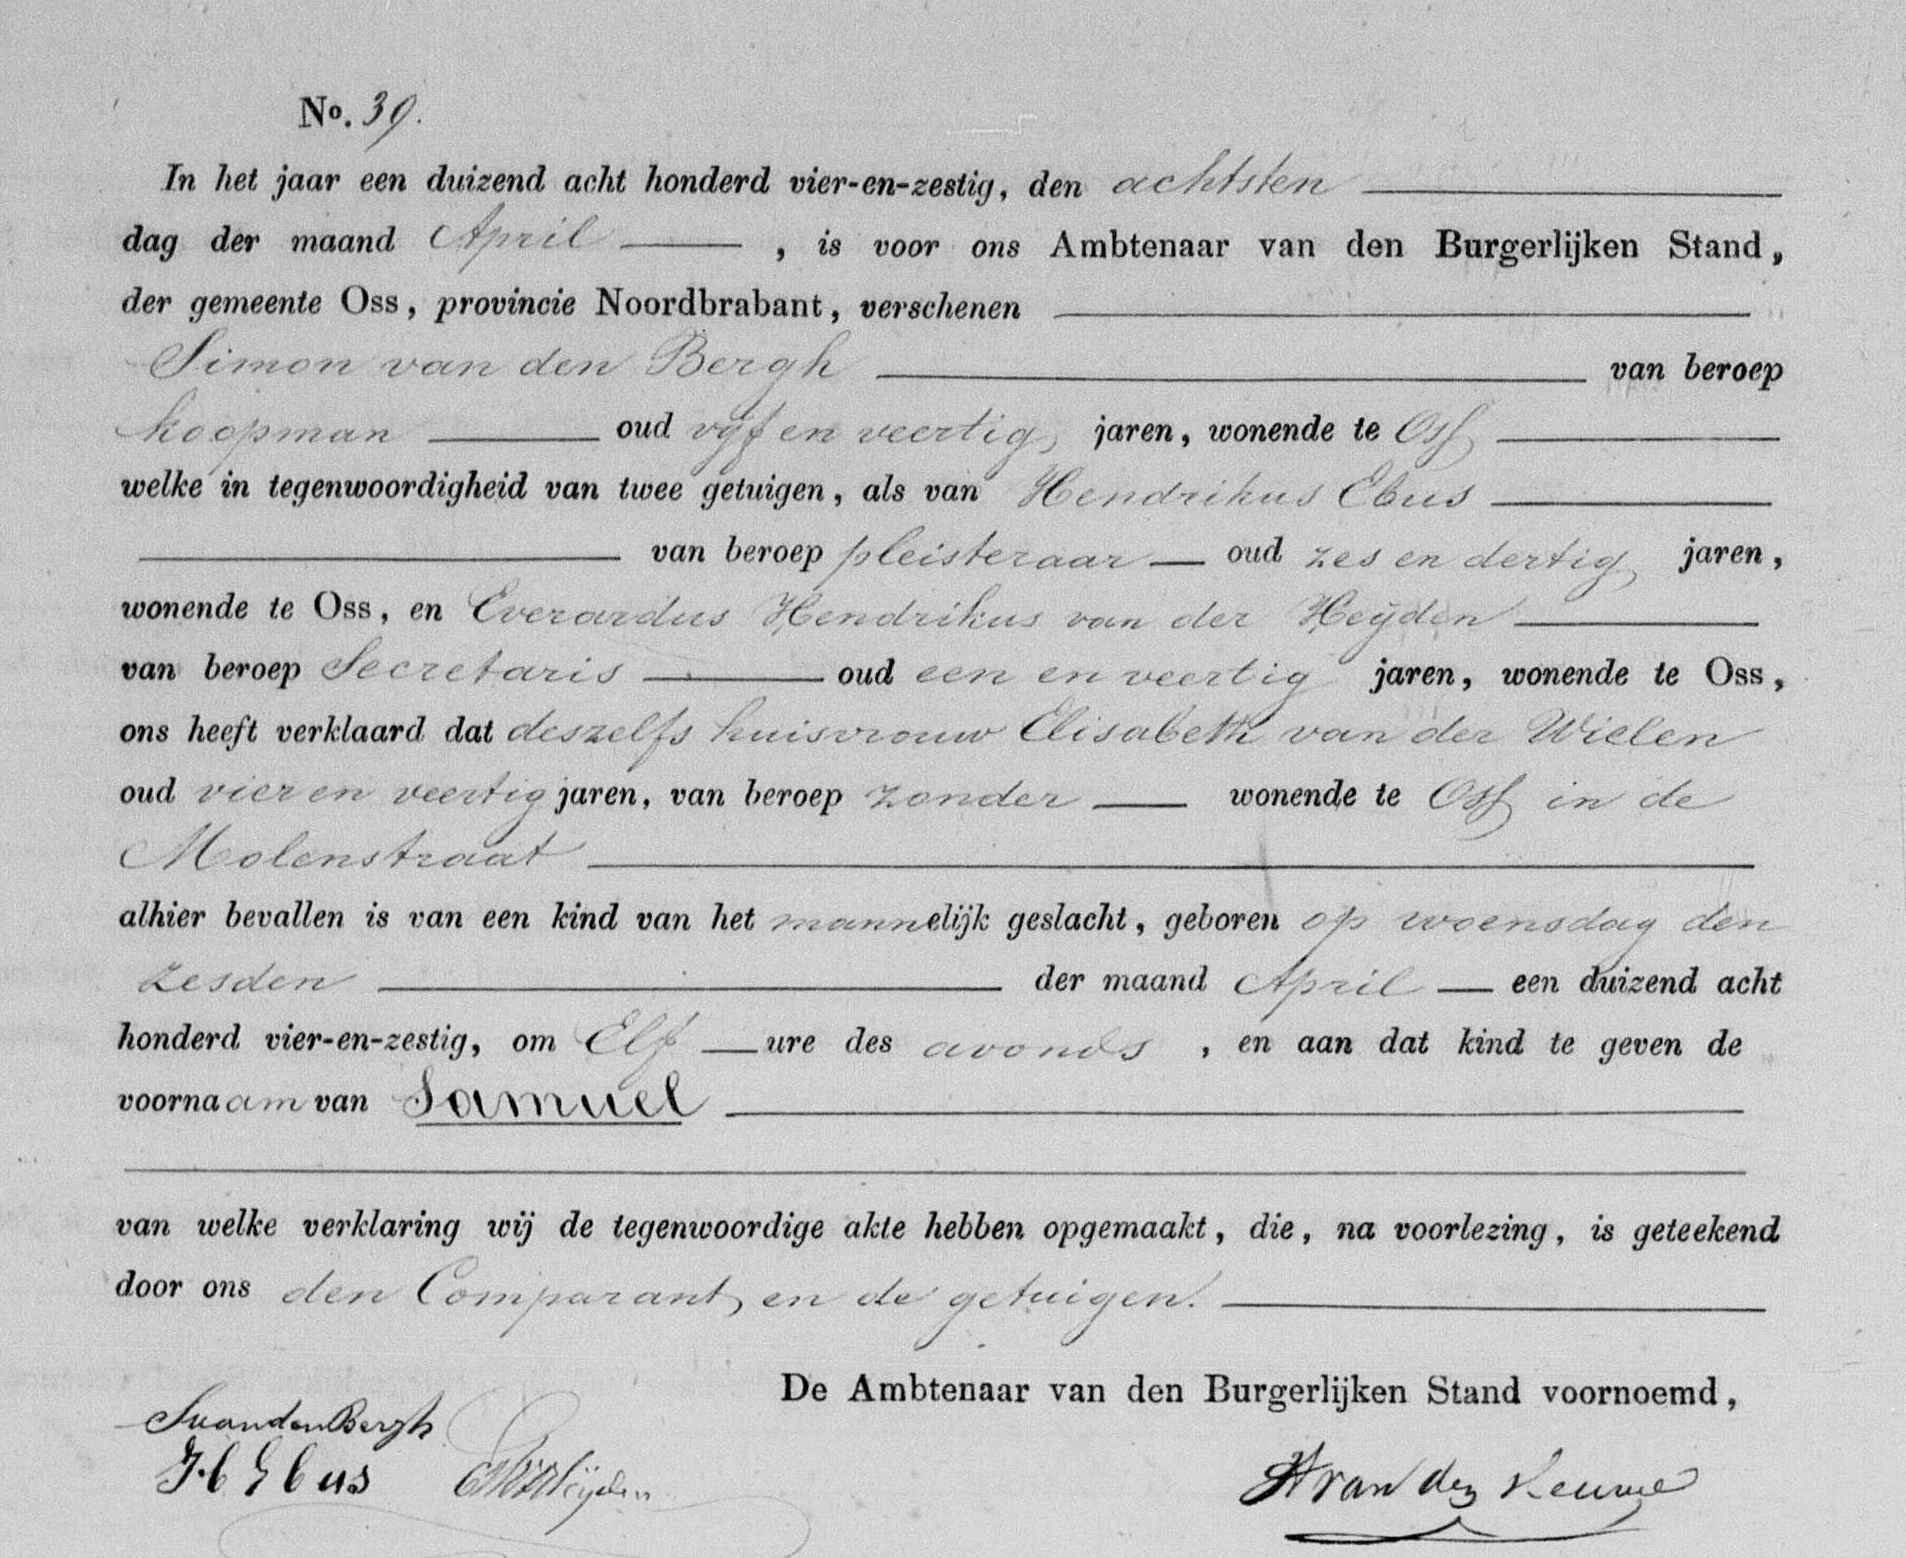 No. 39.
In het jaar een duizend acht honderd vier-en-zestig, den achtsten
dag der maand April , is voor ons Ambtenaar van den Burgerlijken Stand,
der gemeente Oss, provincie Noordbrabant, verschenen
Simon van den Bergh van beroep
koopman oud vijf en veertig jaren, wonende te Oss
welke in tegenwoordigheid van twee getuigen, als van Hendrikus Ebus
van beroep pleisteraar oud zes en dertig jaren,
wonende te Oss, en Everardus Hendrikus van der Heijden
van beroep Secretaris oud een en veertig jaren, wonende te Oss,
ons heeft verklaard dat deszelfs huisvrouw Elisabeth van der Wielen
oud vier en veertig jaren, van beroep zonder wonende te Oss in de
Molenstraat
alhier bevallen is van een kind van het mannelijk geslacht, geboren op woensdag den
zesden der maand April een duizend acht
honderd vier-en-zestig, om Elf ure des avonds , en aan dat kind te geven de
voornaam van Samuel
van welke verklaring wij de tegenwoordige akte hebben opgemaakt, die, na voorlezing, is geteekend
door ons den Comparant en de getuigen.
De Ambtenaar van den Burgerlijken Stand voornoemd,
SvandenBergh
H Ebus